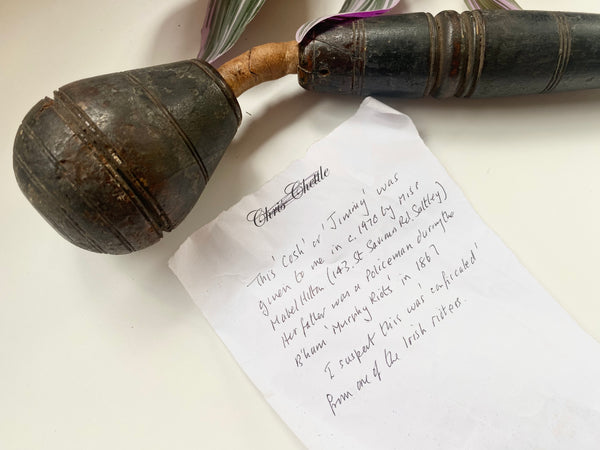 Chris Chettle
This 'Cosh' or 'Jimmy' was
given to me in c. 1970 by Miss
Mabel Hilton (143. St Saviours Rd. Saltley)
Her father was a Policeman during the
B'ham 'Murphy Riots' in 1867
I suspect this was 'confiscated'
from one of the Irish rioters.